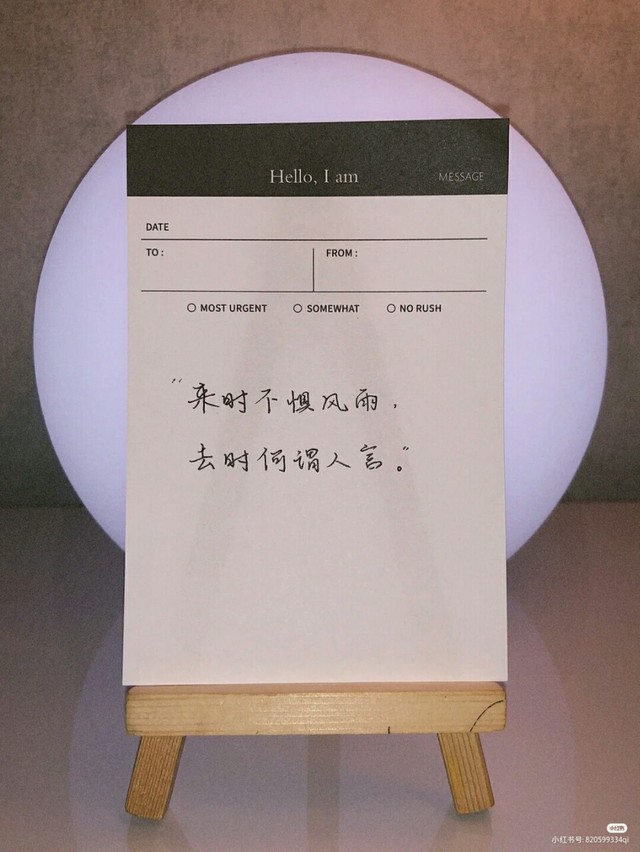 Hello, I am
MESSAGE
DATE
TO :
FROM :
○ MOST URGENT ○ SOMEWHAT ○ NO RUSH
“来时不惧风雨，
去时何谓人言。”
小红书
小红书号: 820599334qi